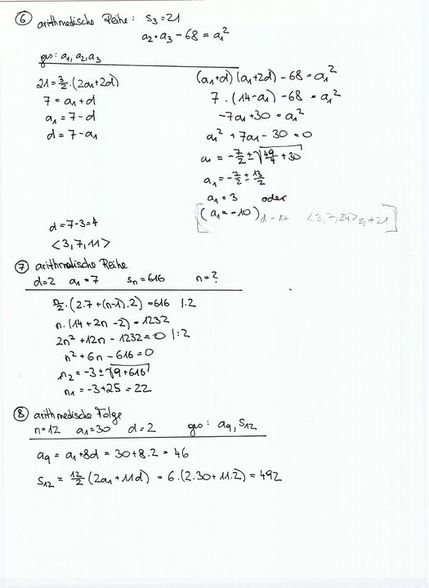 ⑥ arithmedische Reihe: s₃ = 21
a₂ · a₃ − 68 = a₁²
ges: a₁, a₂, a₃
21 = 3/2 · (2a₁ + 2d)
7 = a₁ + d
a₁ = 7 − d
d = 7 − a₁
(a₁ + d) (a₁ + 2d) − 68 = a₁²
7 · (14 − a₁) − 68 = a₁²
−7a₁ + 30 = a₁²
a₁² + 7a₁ − 30 = 0
a₁ = −7/2 ± √(49/4 + 30)
a₁ = −7/2 ± 13/2
a₁ = 3 oder
[(a₁ = −10) d = 17 <3, 7, 24> ≠ 21]
d = 7 − 3 = 4
<3, 7, 11>
⑦ arithmetische Reihe
d = 2 a₁ = 7 sₙ = 616 n = ?
n/2 · (2·7 + (n−1)·2) = 616 | ·2
n · (14 + 2n − 2) = 1232
2n² + 12n − 1232 = 0 | :2
n² + 6n − 616 = 0
n₂ = −3 ± √(9 + 616)
n₁ = −3 + 25 = 22
⑧ arithmedische Folge
n = 12 a₁ = 30 d = 2 ges: a₉, S₁₂
a₉ = a₁ + 8d = 30 + 8·2 = 46
S₁₂ = 12/2 (2a₁ + 11d) = 6 · (2·30 + 11·2) = 492